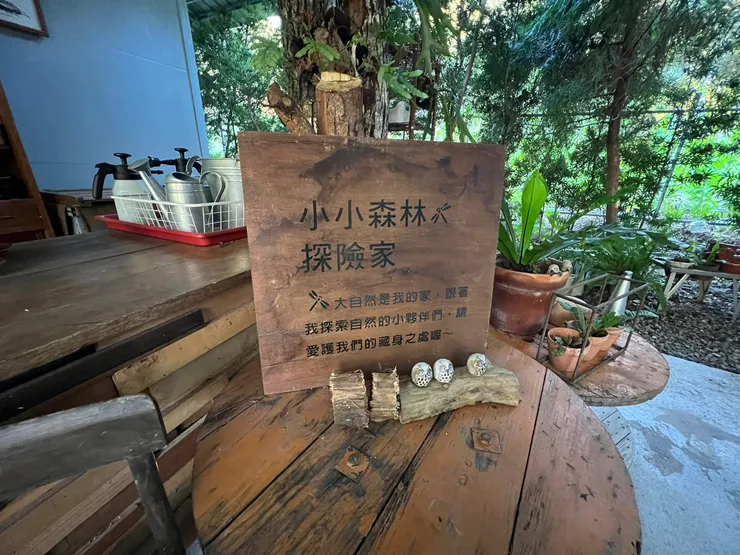 小小森林
探險家
大自然是我的家，跟著
我探索自然的小夥伴們，請
愛護我們的藏身之處喔～